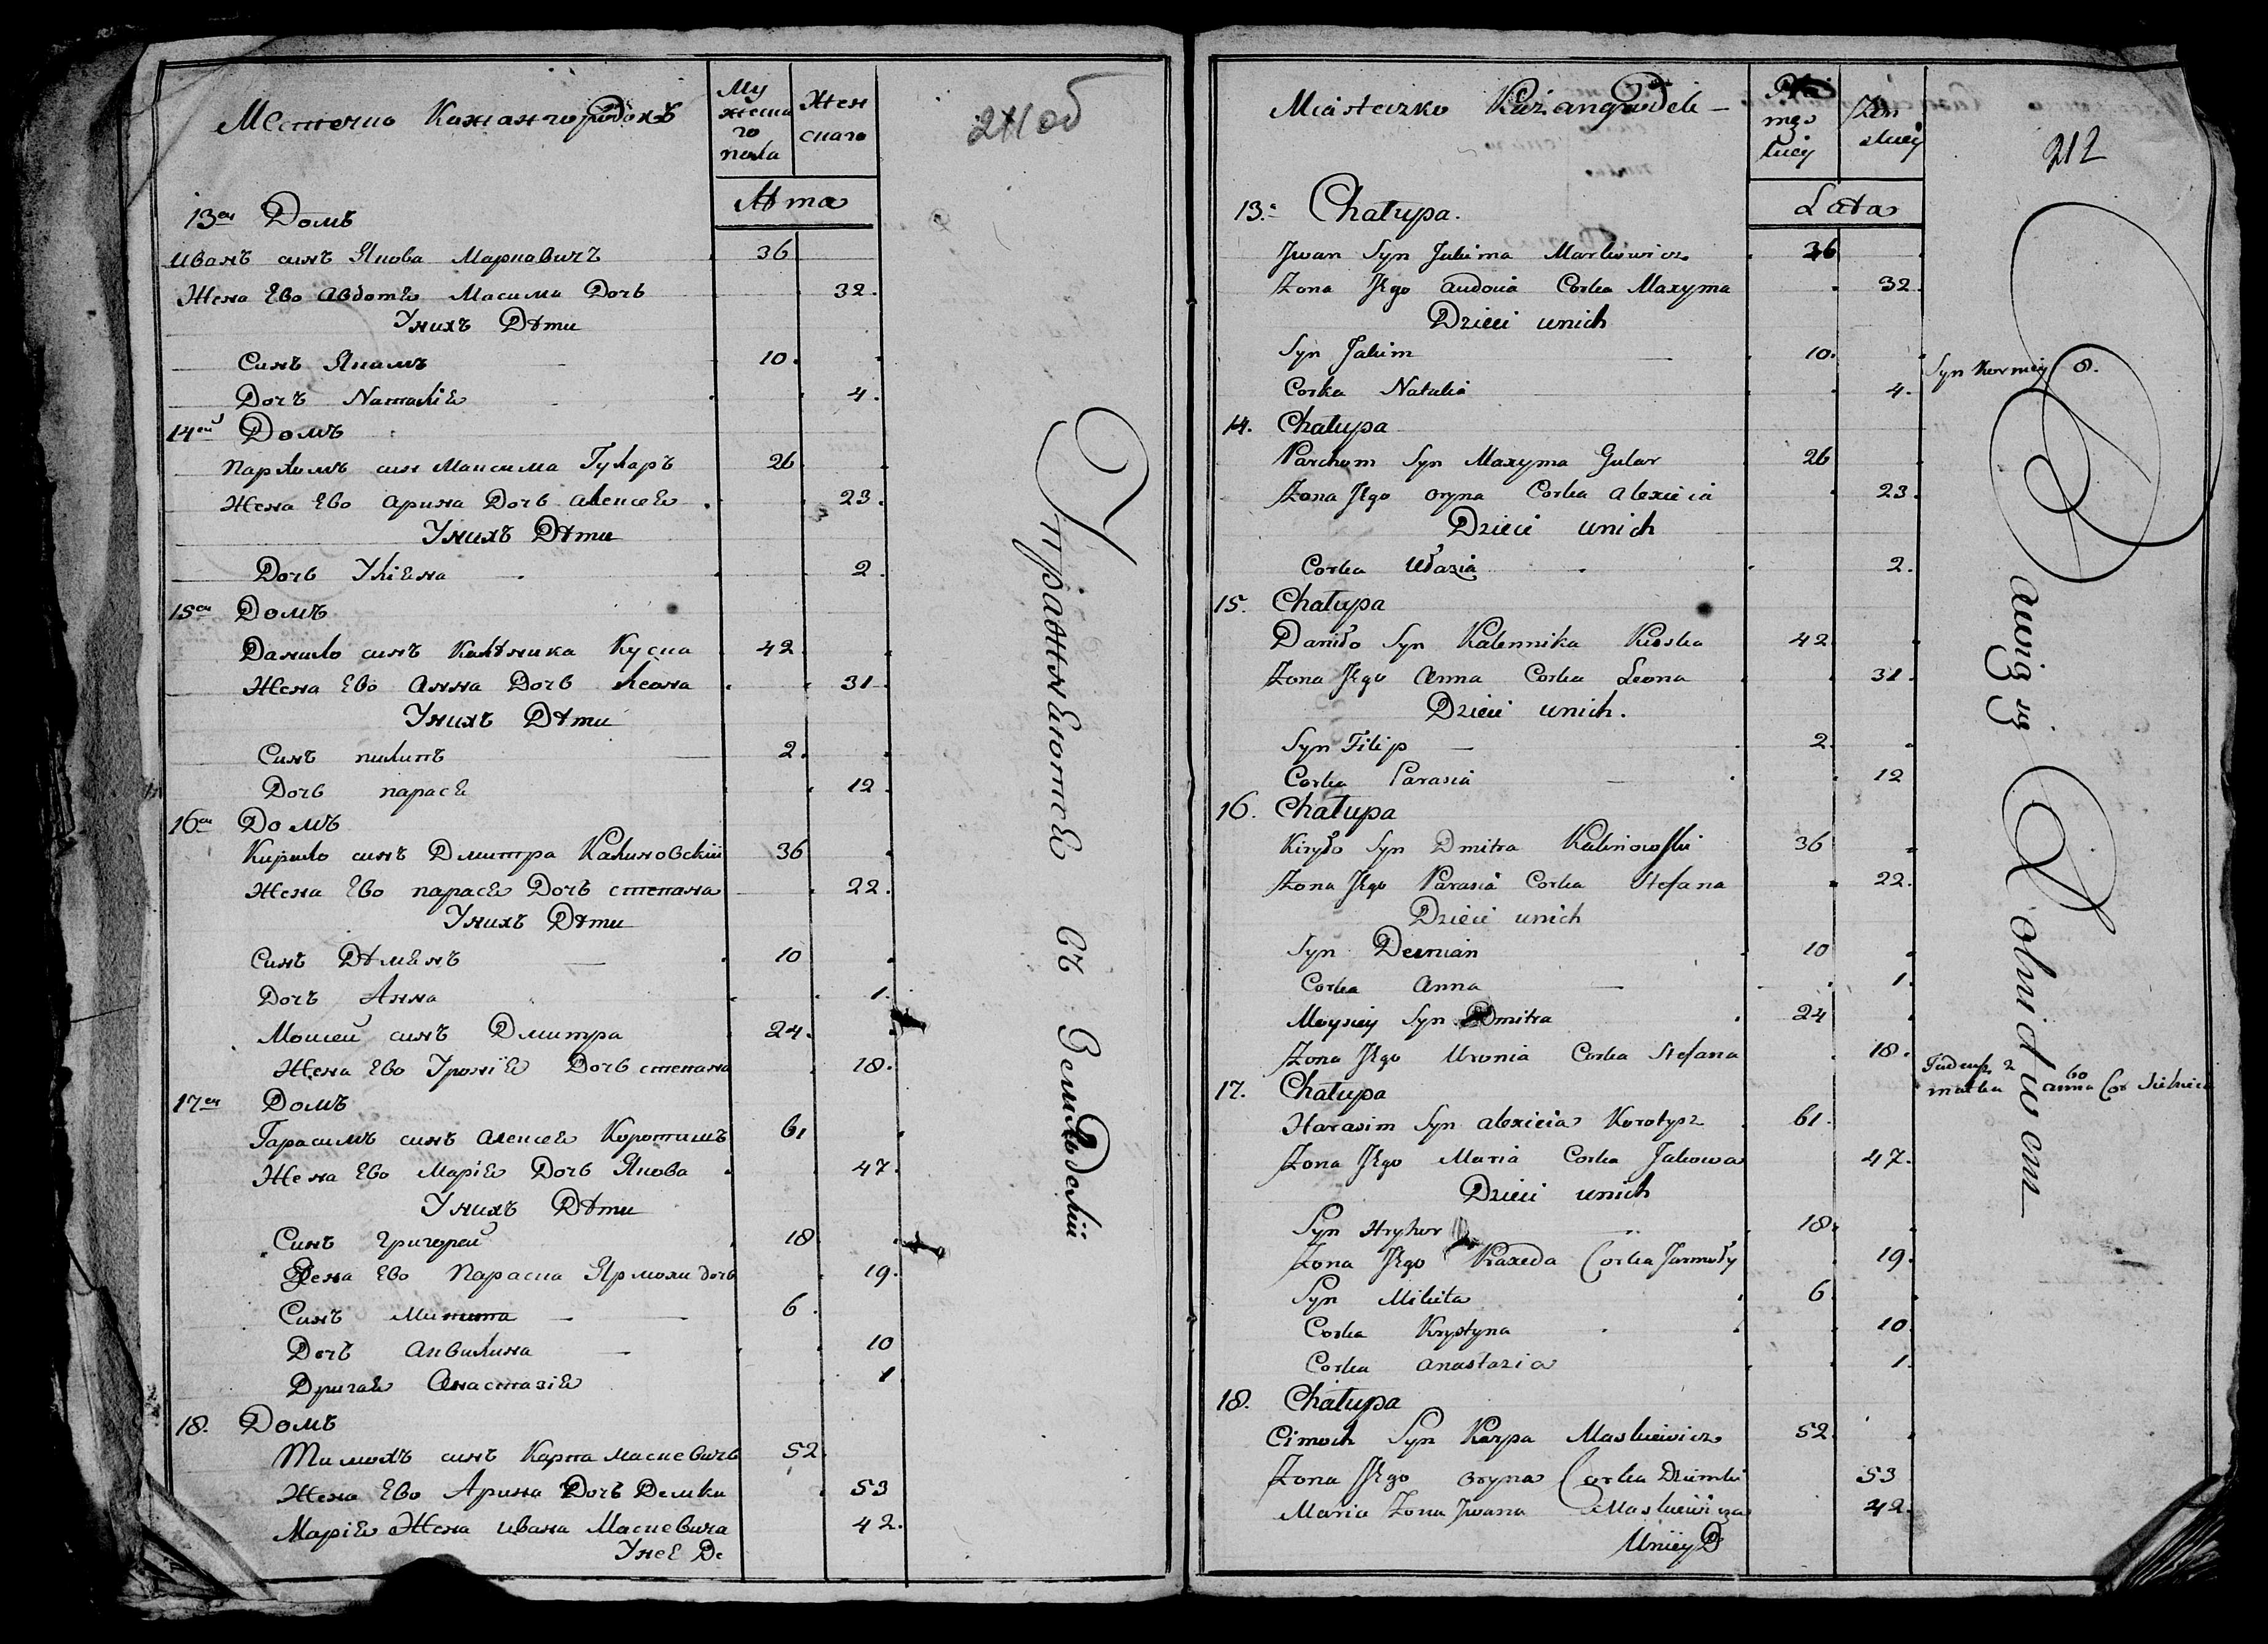 Местечко Кожангородокъ
Мужеска го пола
Женскаго
211 об
Лѣта
13ей Домъ
Иванъ синъ Якова Марковичъ 36
Жена Ево Авдотѣ Максима Дочь 32
У нихъ Дѣти
Синъ Якимъ 10
Дочъ Наталiѣ 4
14ей Домъ
Пархомъ син Максима Гуларъ 26
Жена Ево Арина Дочь Алексеѣ 23
У нихъ Дѣти
Дочь Улiяна 2
15ей Домъ
Данило синъ Калѣника Куска 42
Жена Ево Анна Дочь Леона 31
У нихъ Дѣти
Синъ пилипъ 2
Дочь парасѣ 12
16ей Домъ
Кирило синъ Дмитра Калиновскiй 36
Жена Ево парасѣ Дочъ степана 22
У нихъ Дѣти
Синъ Дѣмянъ 10
Дочъ Анна 1
Мошей синъ Дмитра 24
Жена Ево Уронiѣ Дочь степана 18
17ей Домъ
Гарасимъ синъ Алексеѣ Коротишъ 61
Жена Ево Марiѣ Дочь Якова 47
У нихъ Дѣти
Синъ григорей 18
Жена Ево Параска Ярмоли дочь 19
Синъ Микита 6
Дочъ Аквилина 10
Другаѣ Анастазiѣ 1
18. Домъ
Тимохъ синъ Карпа Маскевичъ 52
Жена Ево Арина Дочъ Демки 53
Марiѣ Жена ивана Маскевича 42
У неѣ Де
Упражняютсѣ въ Земледелiи
Miasteczko Kożangrodek
męs kiey
Żen skiey
212
Lata
13. Chałupa.
Jwan Syn Jakima Markiewicz 36
Żona Jego Audocia Corka Maxyma 32
Dzieci unich
Syn Jakim 10
Syn Korniey 8.
Corka Natalia 4
14. Chałupa
Parchom Syn Maxyma Gular 26
Żona Jego oryna Corka alexieia 23
Dzieci unich
Corka Ułasia 2.
15. Chałupa
Daniło Syn Kalennika Kuska 42
Żona Jego Anna Corka Leona 31
Dzieci unich.
Syn Filip 2
Corka Parasia 12
16. Chałupa
Kiryło Syn Dmitra Kalinowski 36
Żona Jego Parasia Corka Stefana 22.
Dzieci unich
Syn Demian 10
Corka Anna 1
Moysiey Syn Dmitra 24
Żona Jego Uronia Corka Stefana 18.
matka anna 60
17. Chałupa
Harasim Syn alexieia Korotysz 61
Żona Jego Maria Corka Jakowa 47.
Dzieci unich
Syn Hryhor 18
Żona Jego Praxeda Corka Jarmoły 19
Syn Mikita 6
Corka Krystyna 10
Corka anastazia 1
18. Chałupa
Cimoch Syn Karpa Maskiewicz 52
Żona Jego oryna Corka Dziemki 53
Maria Żona Jwana Maskiewicza 42.
Uniey D
Bawią się Rolnictwem